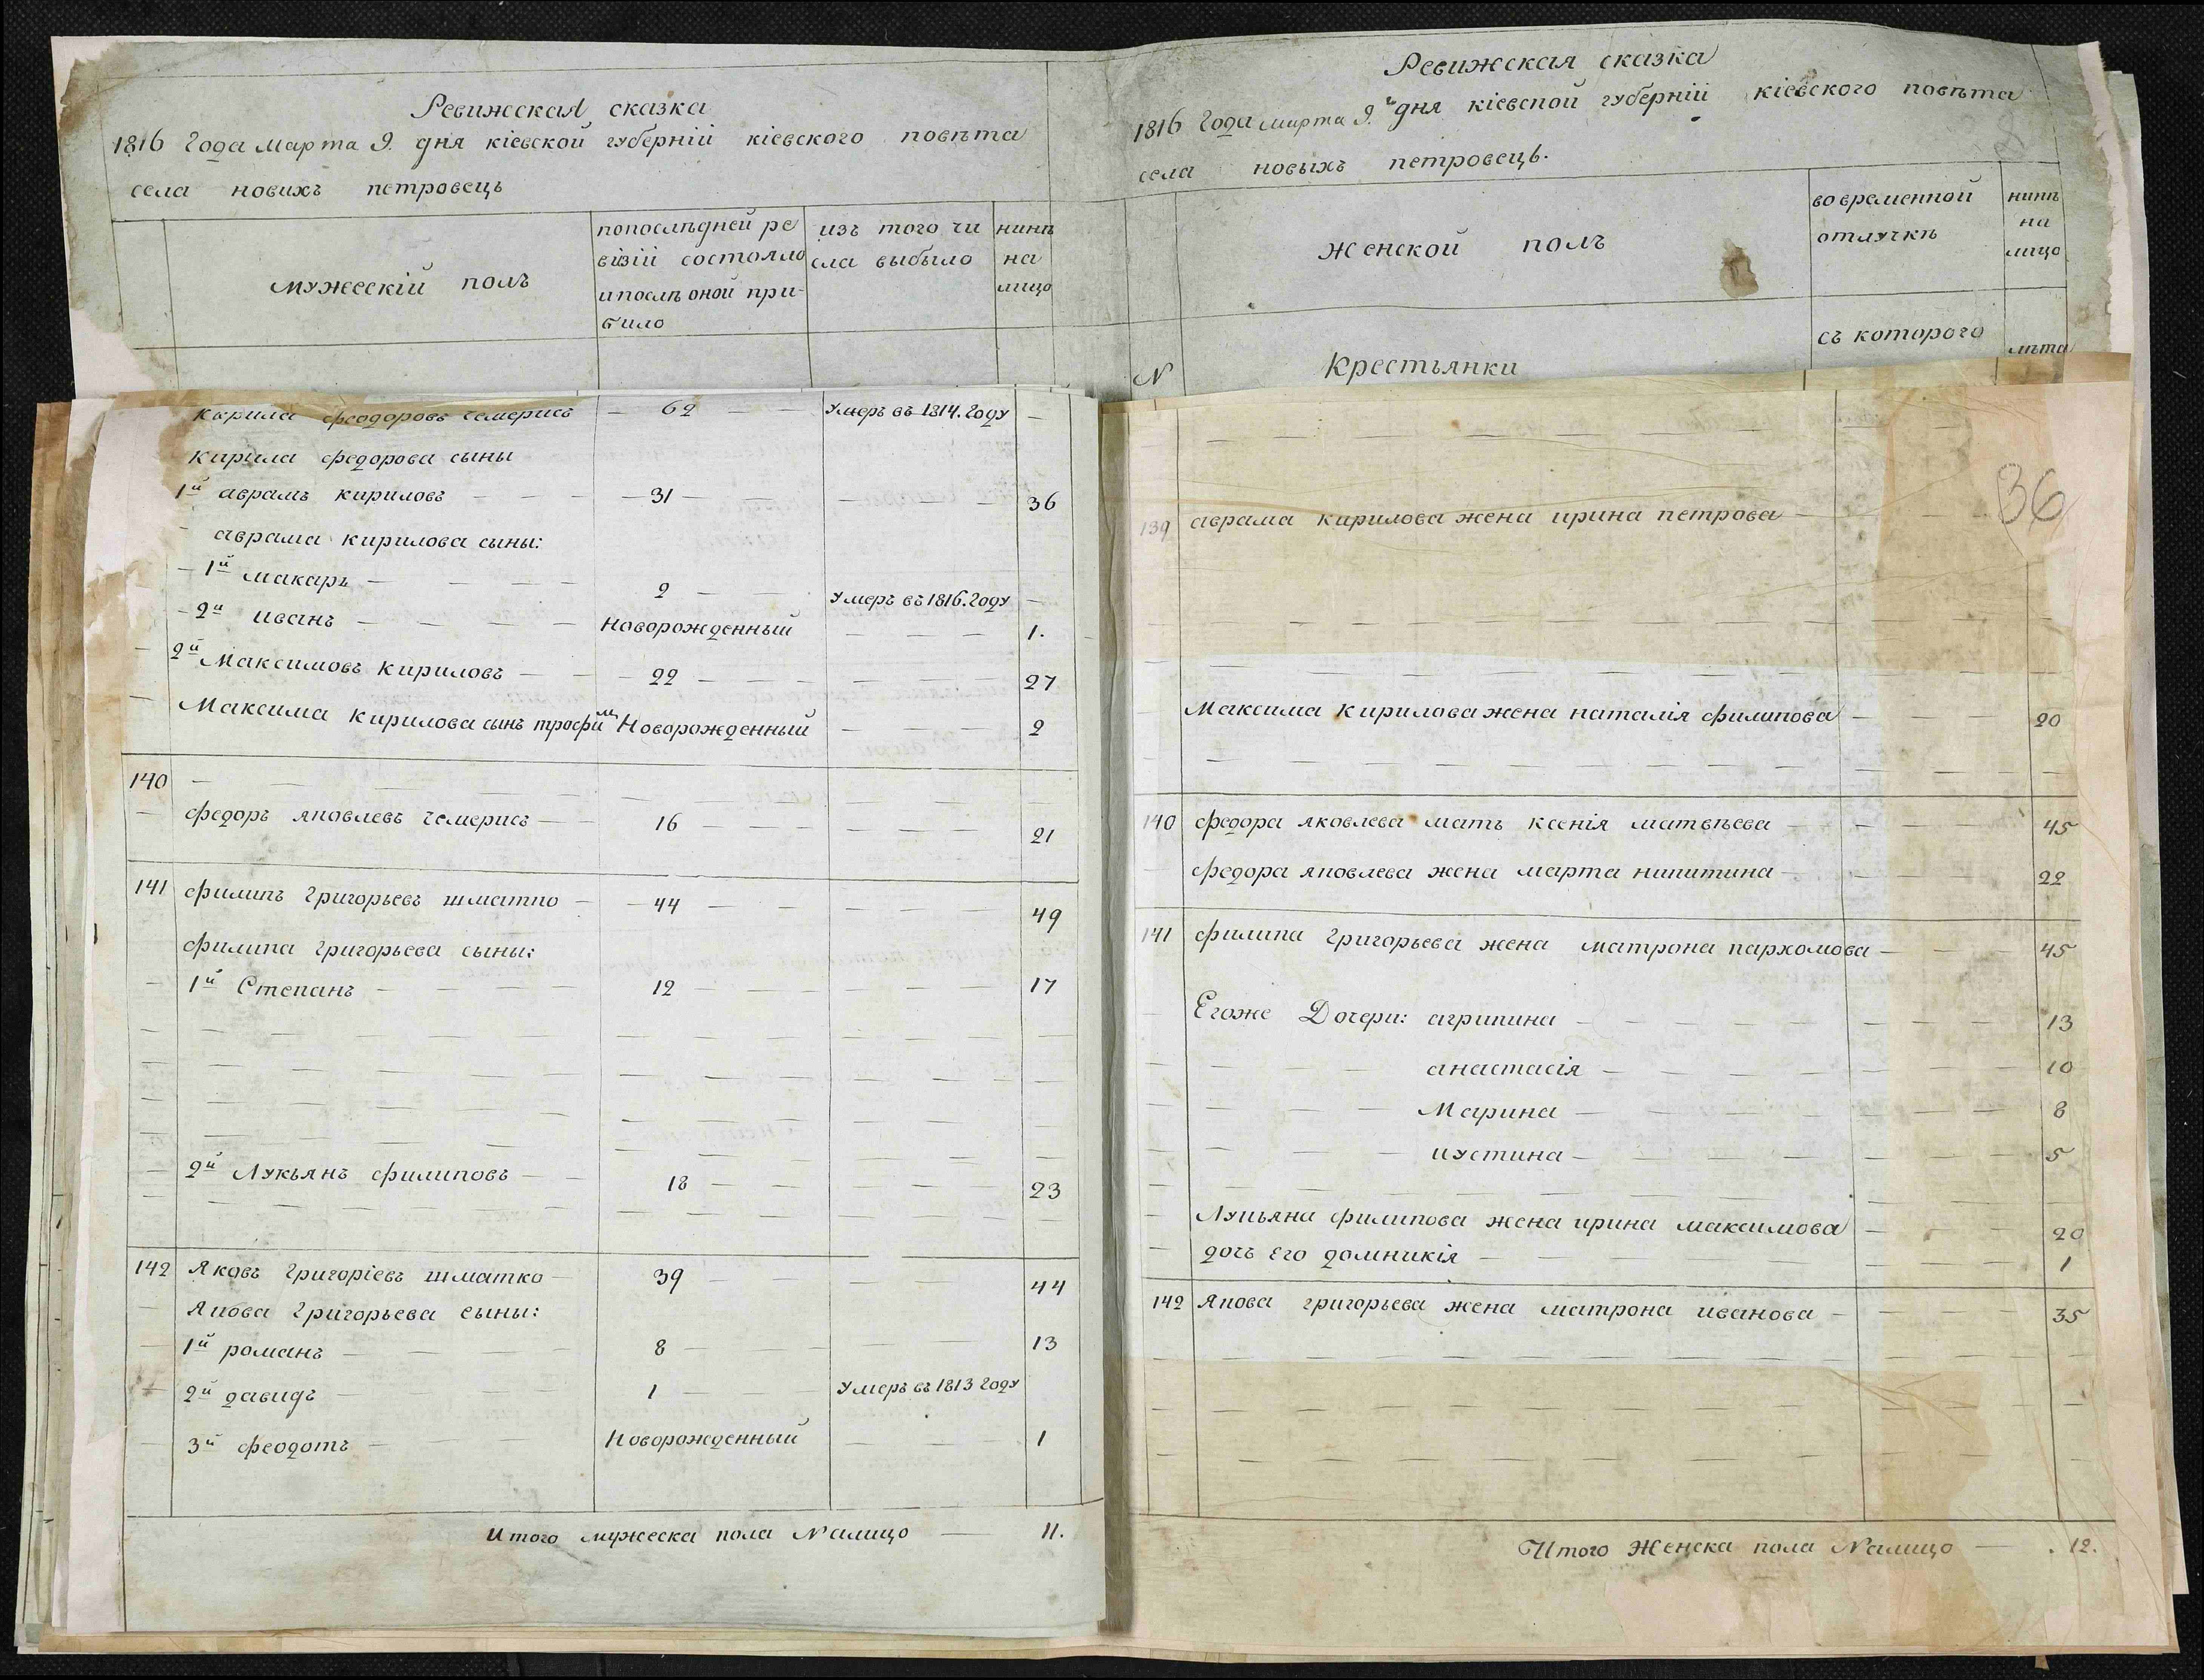 Ревижская сказка
1816 Года марта 9. дня кіевской губерніи кіевского повѣта
села новихъ петровець
мужескій полъ
попослѣдней ре
визіи состояло
ипослѣ оной при-
било
изъ того чи
сла выбыло
нинѣ
на
лицо
кирила феодоровъ чемерисъ — 62 — — Умеръ въ 1814. Году —
Кирила федорова сыны
1й аврамъ кириловъ — — — 31 — — — — 36
аврама кирилова сыны:
1й макаръ — — — 2 — — Умеръ въ 1816. Году —
2й иванъ — — — — Новорожденный — — — 1.
2й Максимовъ Кириловъ — — 22 — — — — 27
Максима Кирилова сынъ трофим Новорожденный — — — 2
140
федоръ яковлевъ чемерисъ — — 16 — — — — 21
141 филипъ Григорьевъ шматко — 44 — — — — 49
филипа григорьева сыны:
1й Степанъ — — — — 12 — — — — 17
2й Лукьянъ филиповъ — — 18 — — — — 23
142 Яковъ Григоріевъ шматко — 39 — — — 44
Якова Григорьева сыны:
1й романъ — — — 8 — — — 13
2й давидъ — — — 1 — — Умеръ въ 1813 Году
3й феодотъ — — Новорожденный — — 1
Итого мужеска пола Налицо — 11.
Ревижская сказка
1816 Года марта 9.й дня кіевской губерніи кіевского повѣта
села новыхъ петровець.
Женской полъ
вовременной
отлучкѣ
нинѣ
на
лицо
съ которого
лѣта
N Крестьянки
36
139 аврама кирилова жена ирина петрова —
Максима Кирилова жена наталія филипова — — — 20
140 федора яковлева мать ксенія матвѣева — — — — 45
федора яковлева жена марта никитина — — — — 22
141 филипа Григорьева жена матрона пархомова — — — 45
Егоже Дочери: агрипина — — — — 13
анастасія — — — — 10
Марина — — — — 8
иустина — — — — 5
Лукьяна филипова жена ирина максимова — — — 20
дочь его домникія — — — — 1
142 Якова григорьева жена матрона иванова — — — 35
Итого Женска пола Налицо — . 12.